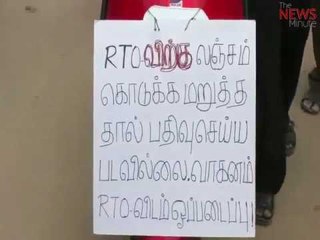 The
NEWS
Minute
RTO-விற்கு லஞ்சம்
கொடுக்க மறுத்த
தால் பதிவுசெய்ய
படவில்லை.வாகனம்
RTO-விடம்ஒப்படைப்பு!